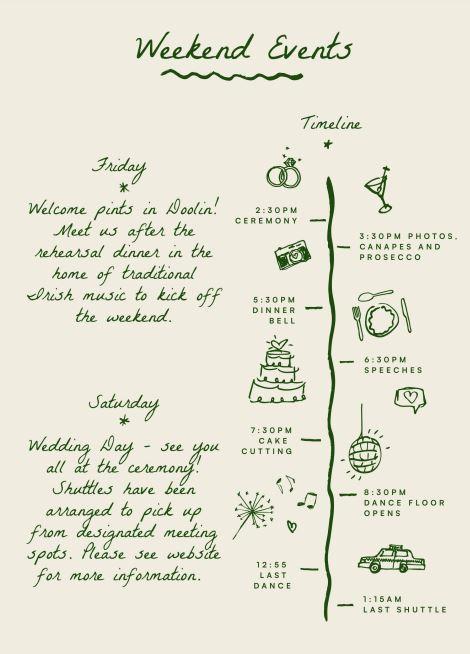 Weekend Events
Friday
Welcome pints in Doolin!
Meet us after the
rehearsal dinner in the
home of traditional
Irish music to kick off
the weekend.
Saturday
Wedding Day - see you
all at the ceremony!
Shuttles have been
arranged to pick up
from designated meeting
spots. Please see website
for more information.
Timeline
2:30PM
CEREMONY
3:30PM PHOTOS,
CANAPES AND
PROSECCO
5:30PM
DINNER
BELL
6:30PM
SPEECHES
7:30PM
CAKE
CUTTING
8:30PM
DANCE FLOOR
OPENS
12:55
LAST
DANCE
1:15AM
LAST SHUTTLE